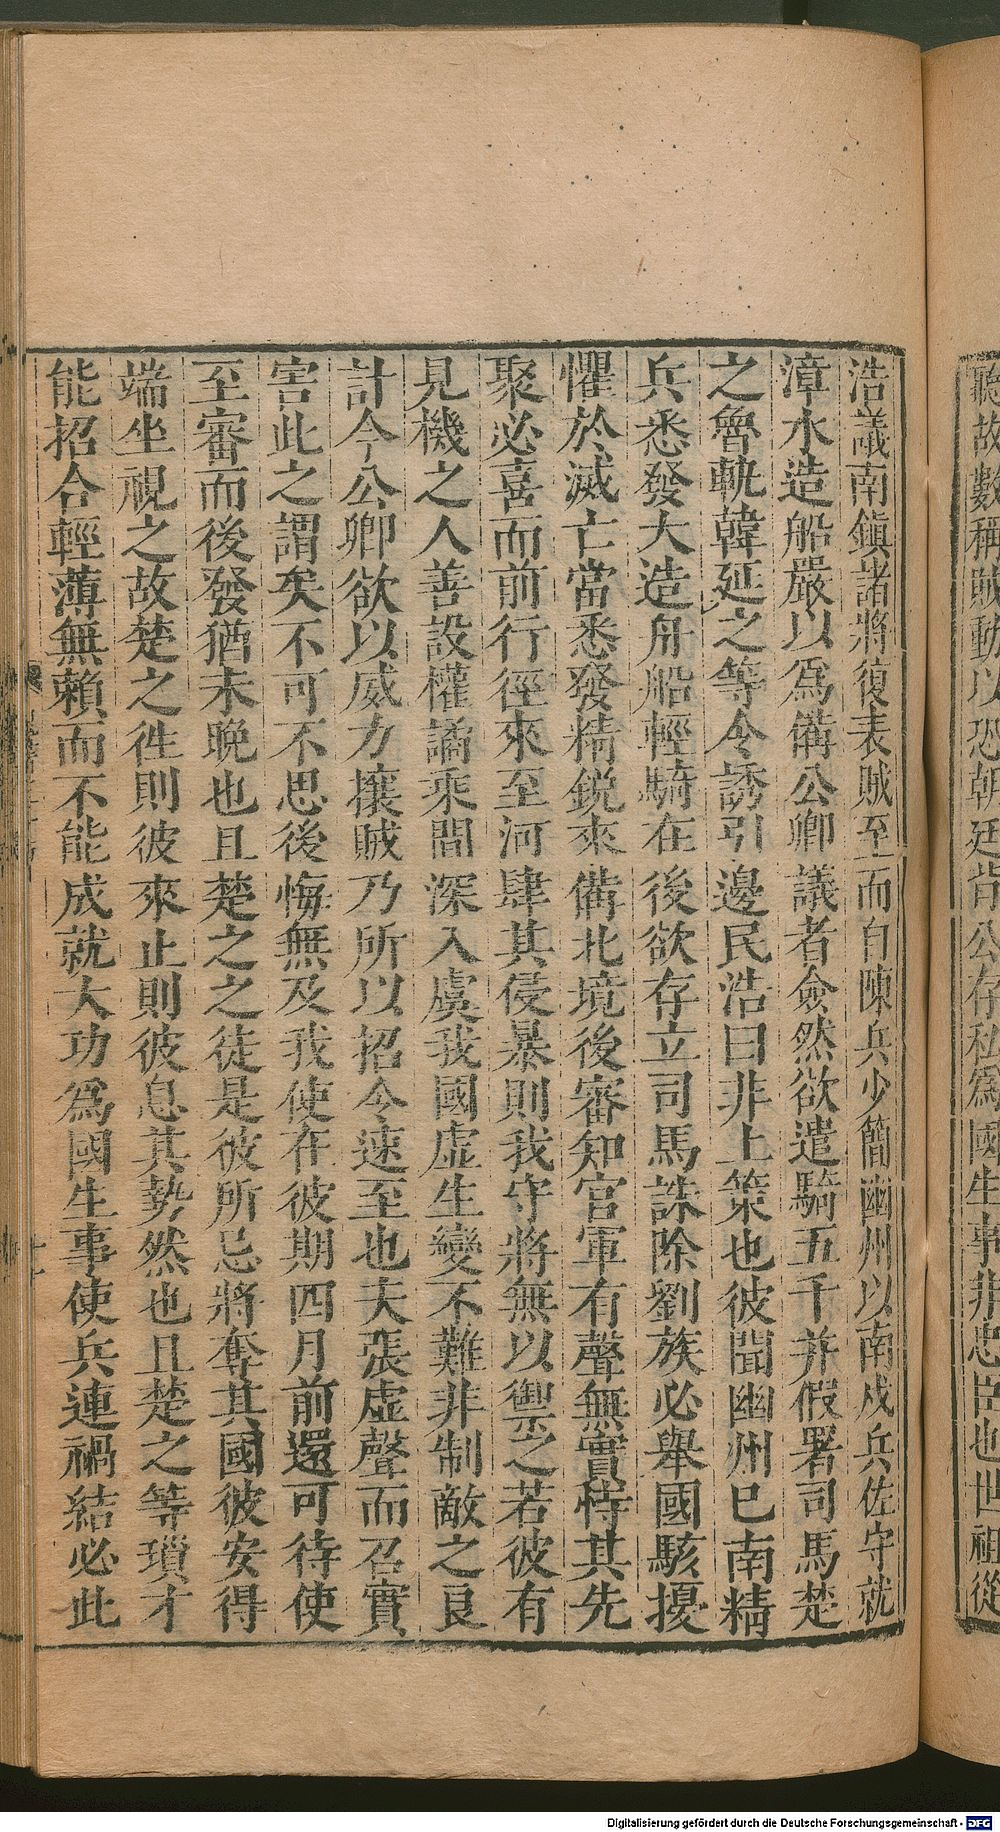 聽故數稱賊動以恐朝廷背公存私爲國生事非忠臣也世祖從
浩議南鎮諸將復表賊至而自陳兵少簡幽州以南戍兵佐守就
漳水造船嚴以爲備公卿議者僉然欲遣騎五千并假署司馬楚
之魯軌韓延之等令誘引邊民浩曰非上策也彼聞幽州已南精
兵悉發大造舟船輕騎在後欲存立司馬誅除劉族必舉國駭擾
懼於滅亡當悉發精銳來備北境後審知官軍有聲無實恃其先
聚必喜而前行徑來至河肆其侵暴則我守將無以禦之若彼有
見機之人善設權譎乘間深入虞我國虛生變不難非制敵之良
計今公卿欲以威力攘賊乃所以招令速至也夫張虛聲而召實
害此之謂矣不可不思後悔無及我使在彼期四月前還可待使
至審而後發猶未晚也且楚之之徒是彼所忌將奪其國彼安得
端坐視之故楚之徃則彼來止則彼息其勢然也且楚之等瑣才
能招合輕薄無賴而不能成就大功爲國生事使兵連禍結必此
Digitalisierung gefördert durch die Deutsche Forschungsgemeinschaft - DFG